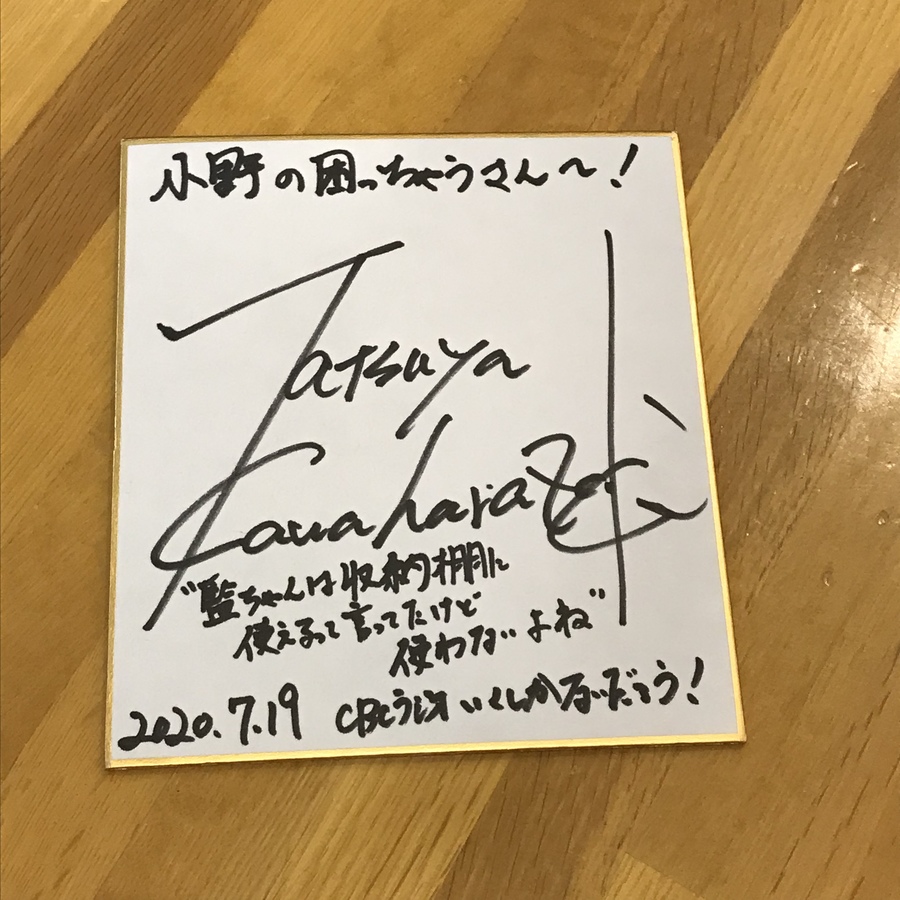 小野の困っちゃうさん〜!
Tatsuya
Kawahara
"藍ちゃんは収納棚に
使えるって言ってたけど
使わないよね"
2020.7.19
いくしかないだろう!